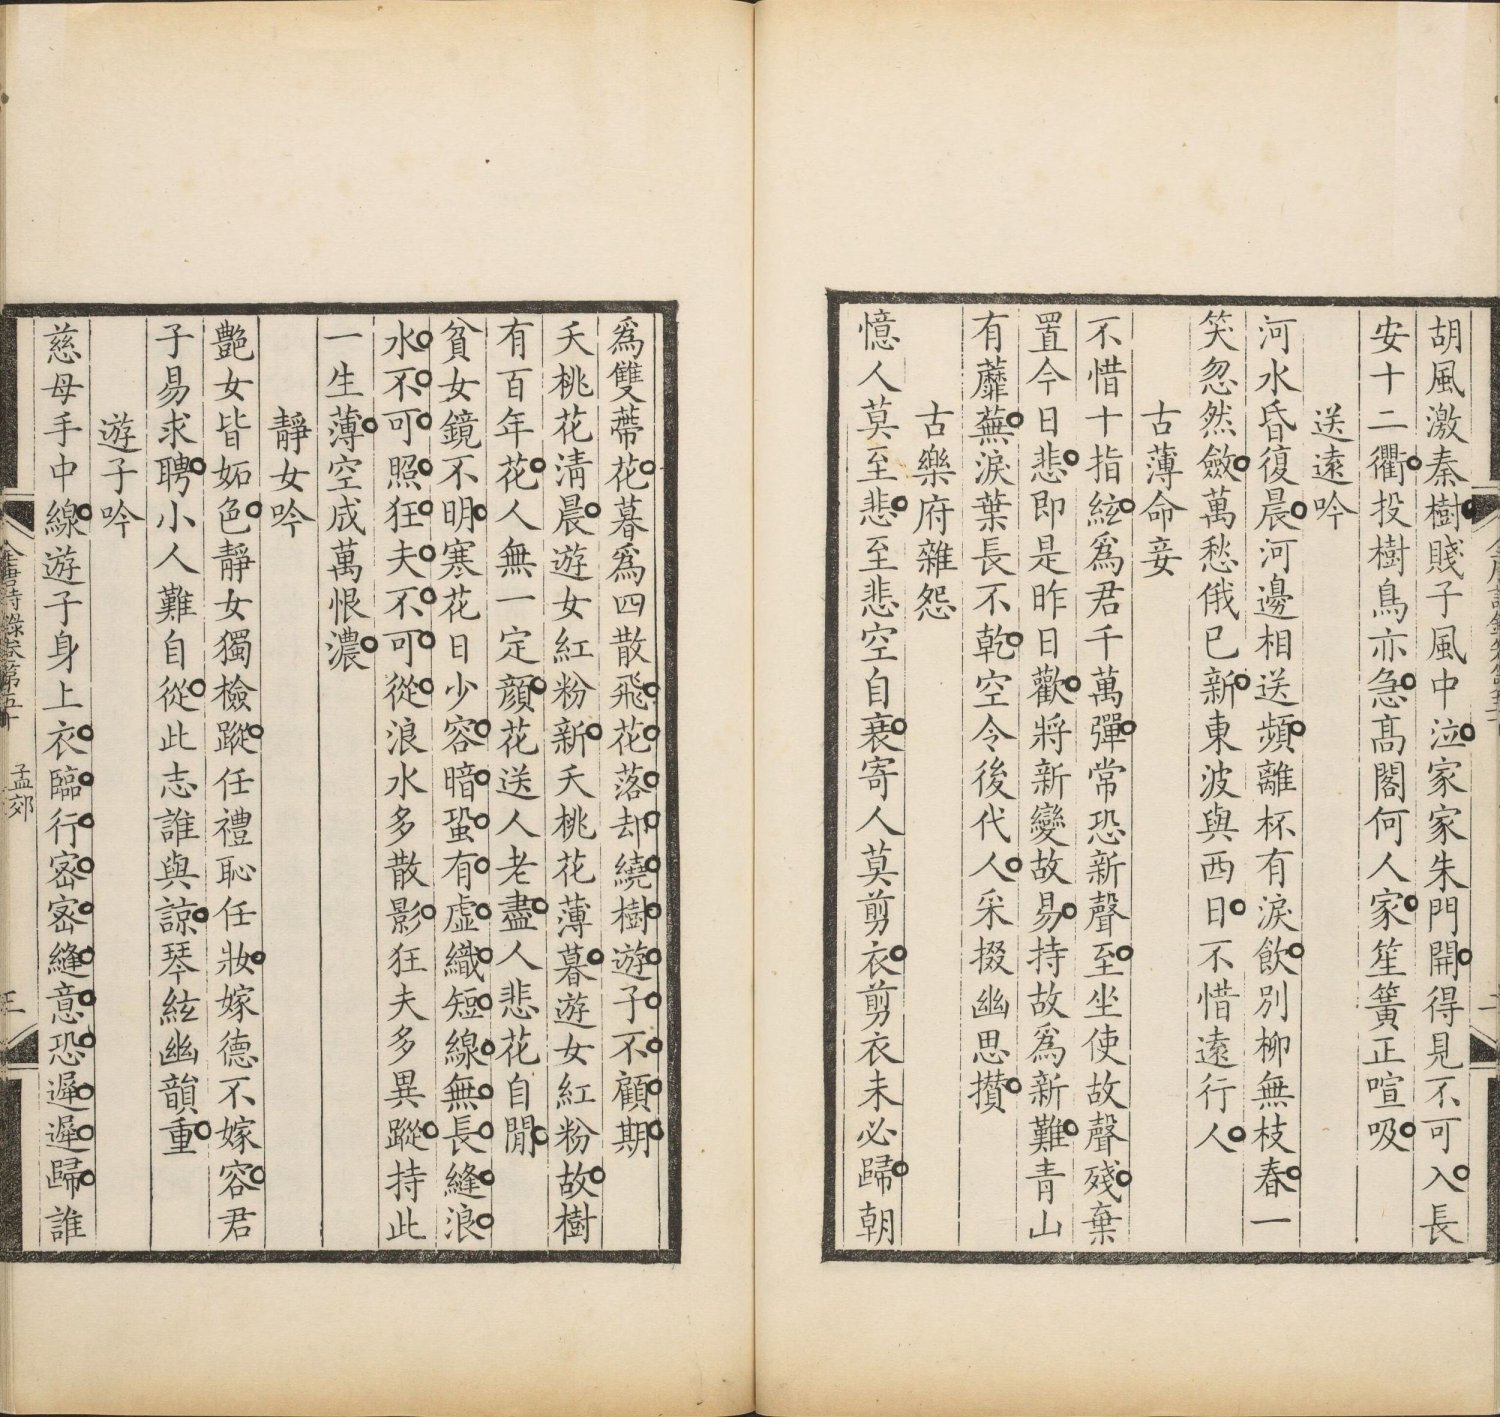 胡風激秦樹賤子風中泣家家朱門開得見不可入長
安十二衢投樹鳥亦急高閣何人家笙簧正喧吸
送遠吟
河水昏復晨河邊相送頻離杯有淚飲別柳無枝春一
笑忽然斂萬愁俄已新東波與西日不惜遠行人
古薄命妾
不惜十指絃爲君千萬彈常恐新聲至坐使故聲殘棄
置今日悲即是昨日歡將新變故易持故爲新難青山
有蘼蕪淚葉長不乾空令後代人采掇幽思攢
古樂府雜怨
憶人莫至悲至悲空自衰寄人莫剪衣剪衣未必歸朝
爲雙蔕花暮爲四散飛花落却繞樹遊子不顧期
夭桃花清晨遊女紅粉新夭桃花薄暮遊女紅粉故樹
有百年花人無一定顔花送人老盡人悲花自閒
貧女鏡不明寒花日少容暗蛩有虛織短線無長縫浪
水不可照狂夫不可從浪水多散影狂夫多異蹤持此
一生薄空成萬恨濃
靜女吟
艷女皆妬色靜女獨檢蹤任禮恥任妝嫁德不嫁容君
子易求聘小人難自從此志誰與諒琴絃幽韻重
遊子吟
慈母手中線遊子身上衣臨行密密縫意恐遲遲歸誰
全唐詩錄卷第五十
孟郊
三